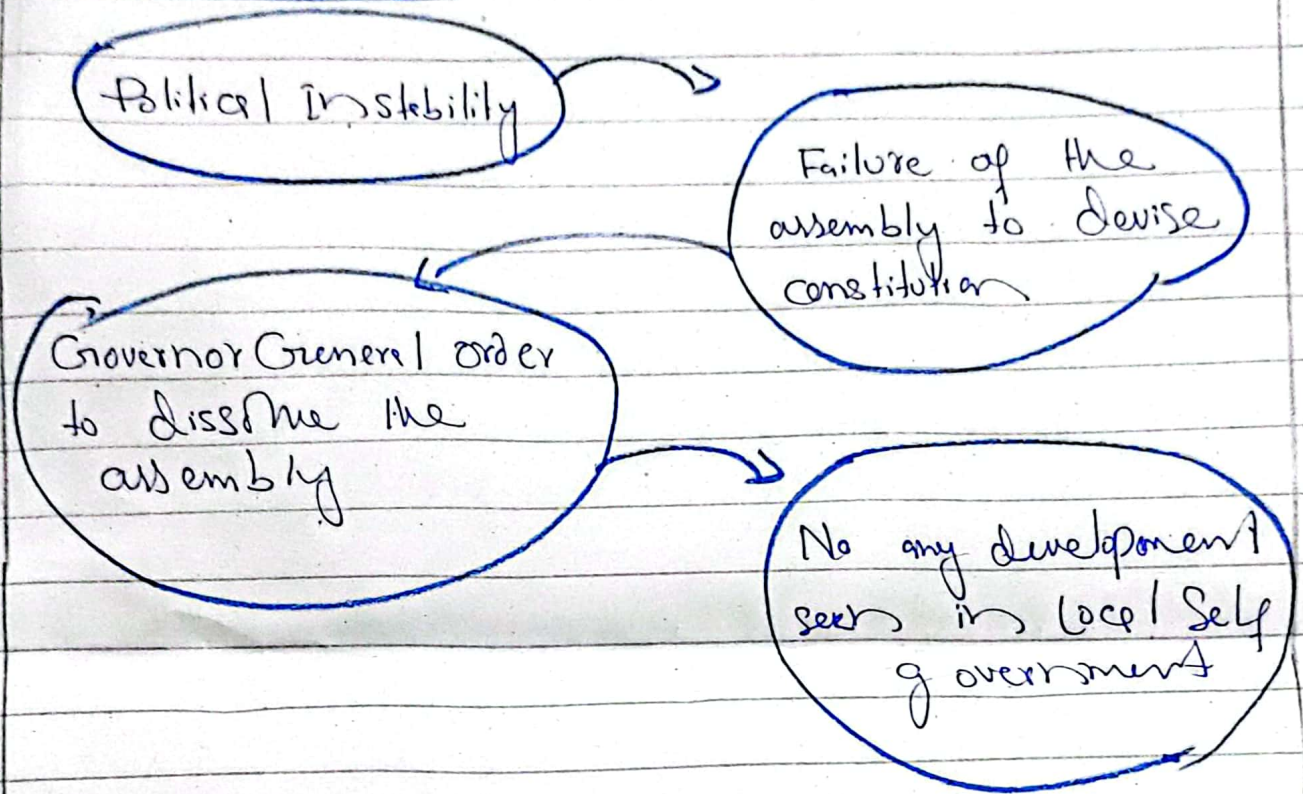 Political Instability
Failure of the
assembly to devise
constitution
Governor General order
to dissolve the
assembly
No any development
seen in Local Self
government